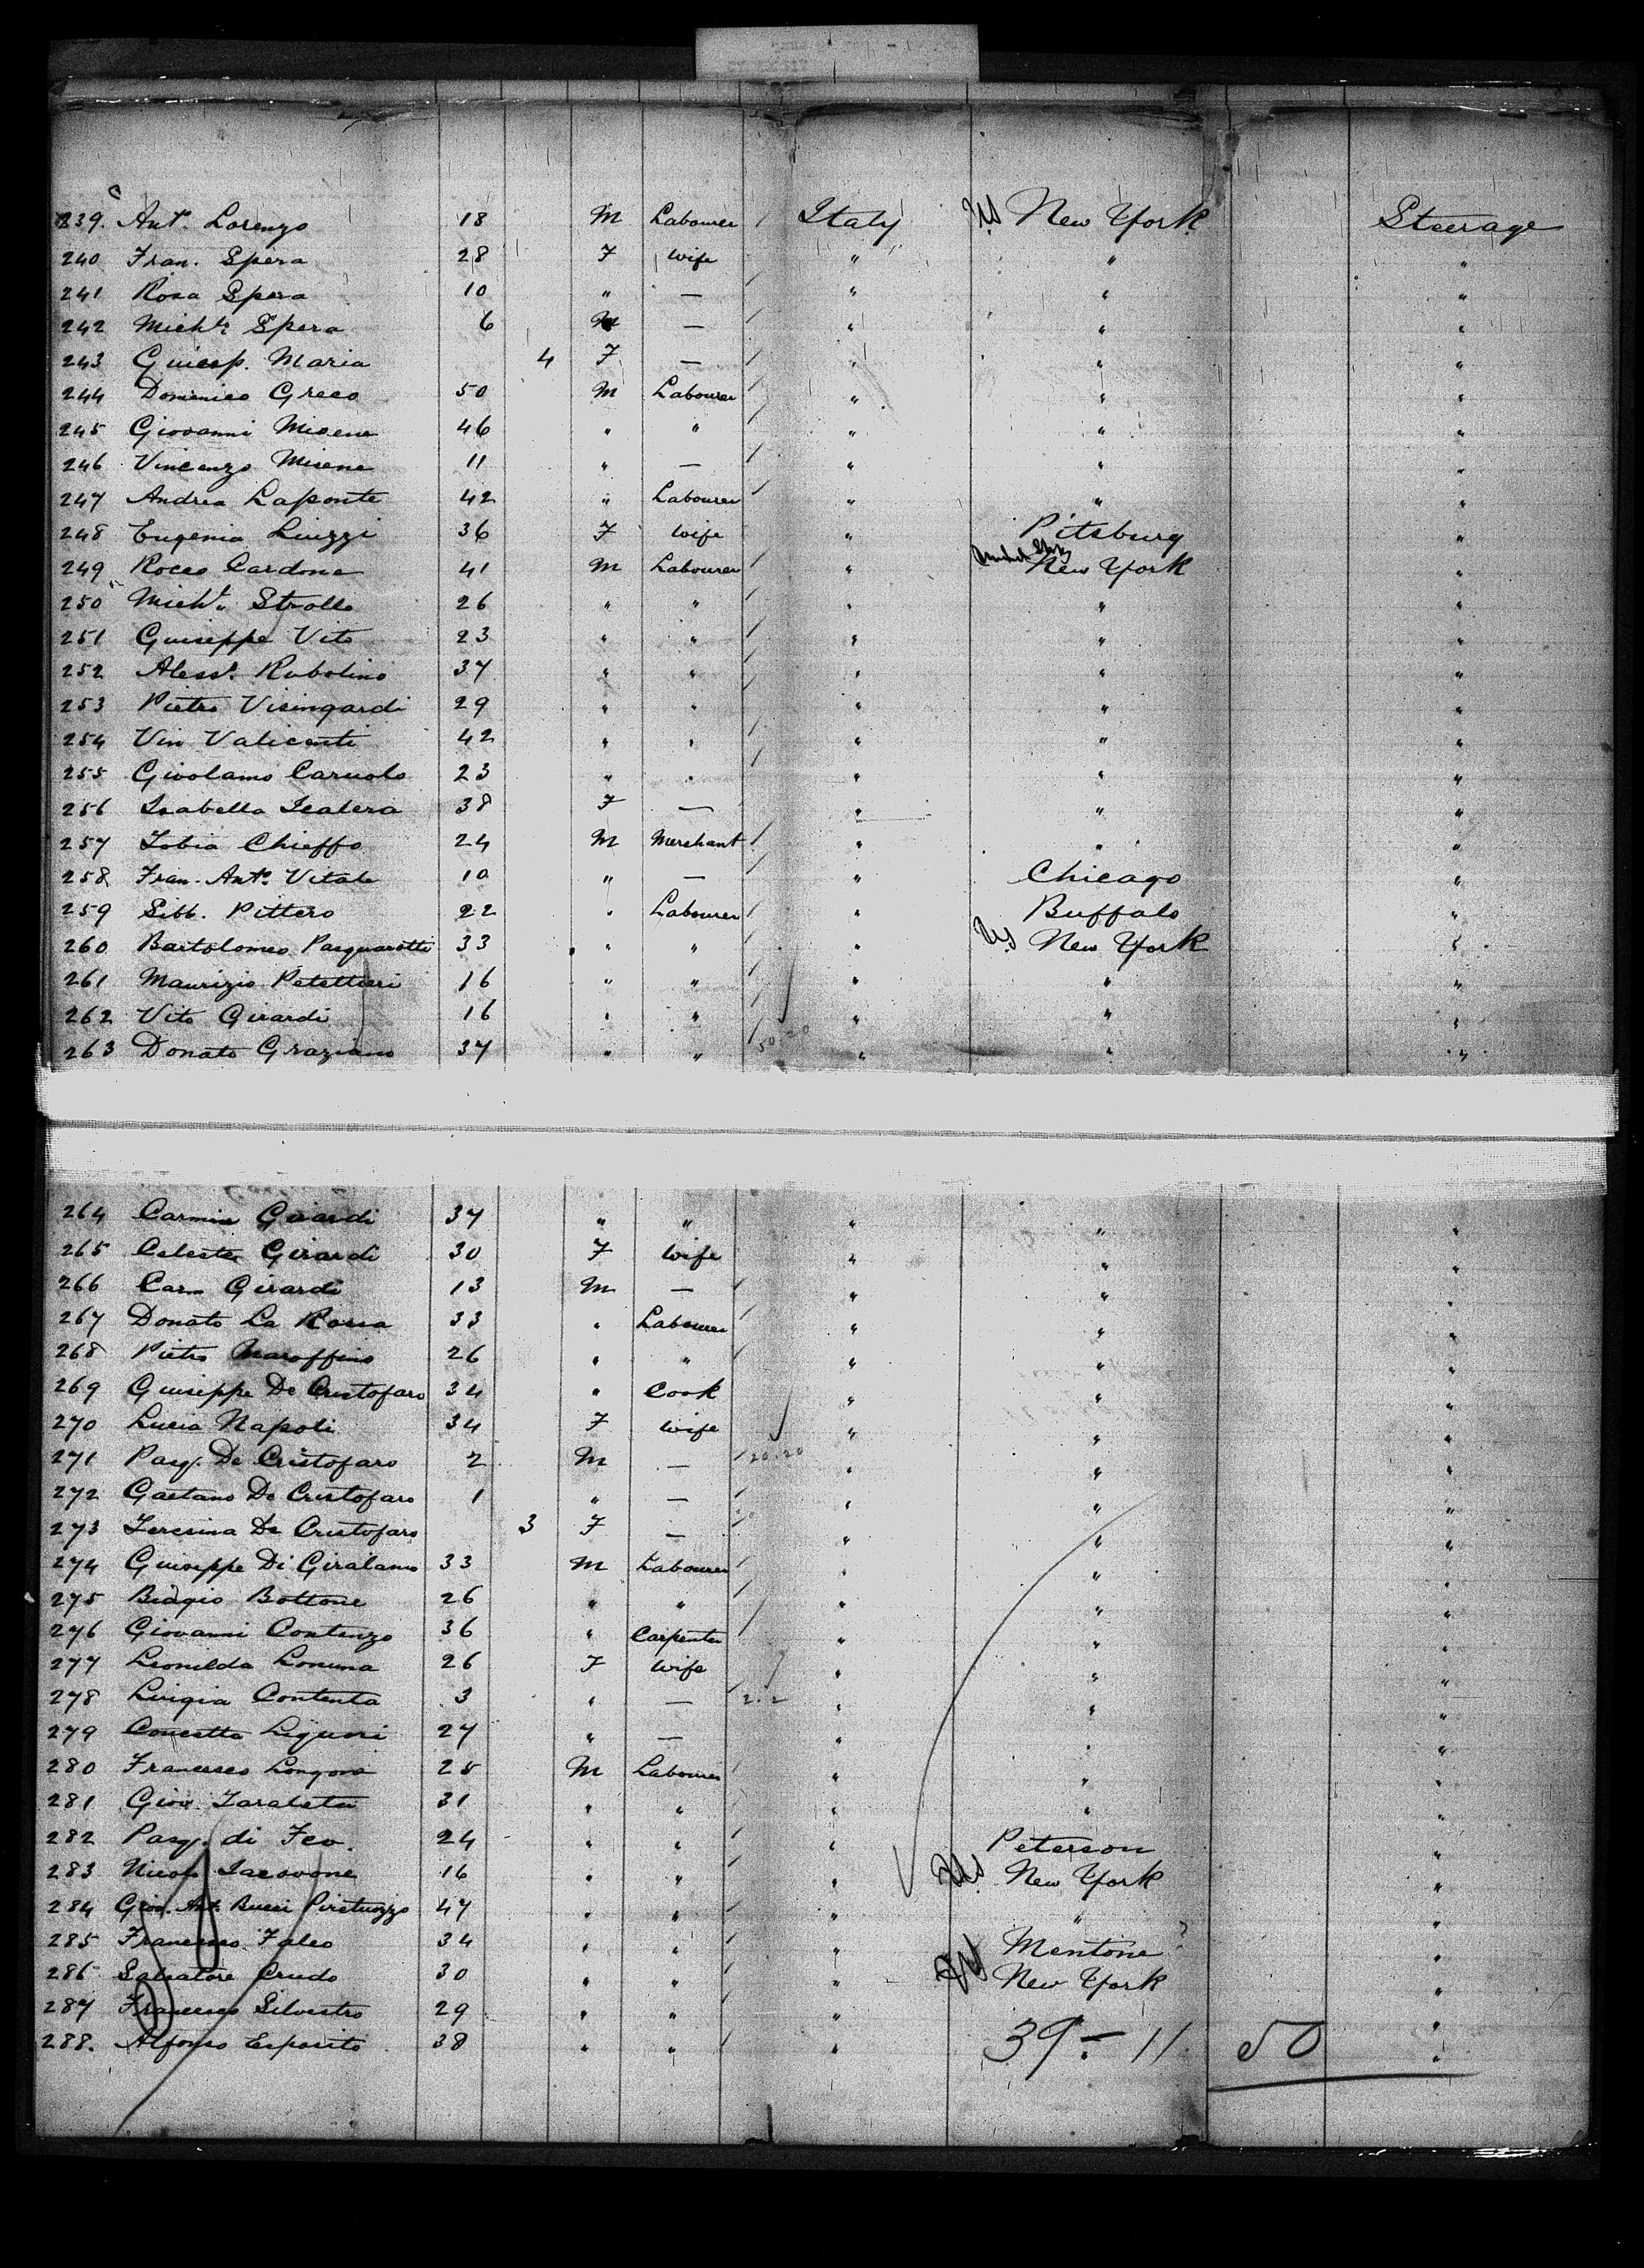 239. Ant. Lorenzo 18 M Labourer Italy US New York Steerage
240 Fran. Spera 28 F Wife " " "
241 Rosa Spera 10 " — " " "
242 Michle Spera 6 M — " " "
243 Guisep. Maria 4 F — " " "
244 Domenico Greco 50 M Labourer " " "
245 Giovanni Misene 46 " " " " "
246 Vincenzo Misene 11 " — " " "
247 Andrea Laponte 42 " Labourer " " "
248 Eugenia Liuzzi 36 F Wife " Pittsburg "
249 Rocco Cardone 41 M Labourer " New York "
250 Michle Strollo 26 " " " " "
251 Guiseppe Vito 23 " " " " "
252 Aless. Rubolino 37 " " " " "
253 Pietro Visingardi 29 " " " " "
254 Vin Valicenti 42 " " " " "
255 Girolamo Caruolo 23 " " " " "
256 Isabella Scalera 38 F — " " "
257 Tobia Chieffo 24 M Merchant " " "
258 Fran. Anto Vitale 10 " — " Chicago "
259 Sibb. Pittero 22 " Labourer " Buffalo "
260 Bartolomeo Pasquarotti 33 " " " US New York "
261 Maurizio Petettieri 16 " " " " "
262 Vito Girardi 16 " " " " "
263 Donato Graziano 37 " " 50.20 " " "
264 Carmin Girardi 37 " " " " "
265 Celeste Girardi 30 F Wife " " "
266 Carm Girardi 13 M — " " "
267 Donato La Rossa 33 " Labourer " " "
268 Pietro Maroffino 26 " " " " "
269 Guiseppe De Cristofaro 34 " Cook " " "
270 Lucia Napoli 34 F Wife " " "
271 Pasq. De Cristofaro 2 M — 20.20 " " "
272 Gaetano De Cristofaro 1 " — " " "
273 Teresina De Cristofaro 3 F — " " "
274 Guiseppe Di Giralamo 33 M Labourer " " "
275 Biagio Bottone 26 " " " " "
276 Giovanni Contenzo 36 " Carpenter " " "
277 Leonilda Lonuna 26 F Wife " " "
278 Luigia Contenta 3 " — 2.2 " " "
279 Concetta Liguori 27 " — " " "
280 Francesco Longona 25 M Labourer " " "
281 Giov. Tarateta 31 " " " " "
282 Pasq. di Feo. 24 " " " Peterson "
283 Nicola Iacovone 16 " " " US New York "
284 Giov. Ant. Bucci Piretuozzo 47 " " " " "
285 Francesco Falco 34 " " " Mentone ? "
286 Salvatore Crudo 30 " " " US New York "
287 Francesco Silvestro 29 " " " "
288. Alfonso Esposito 38 " " " 39 - 11 50 "